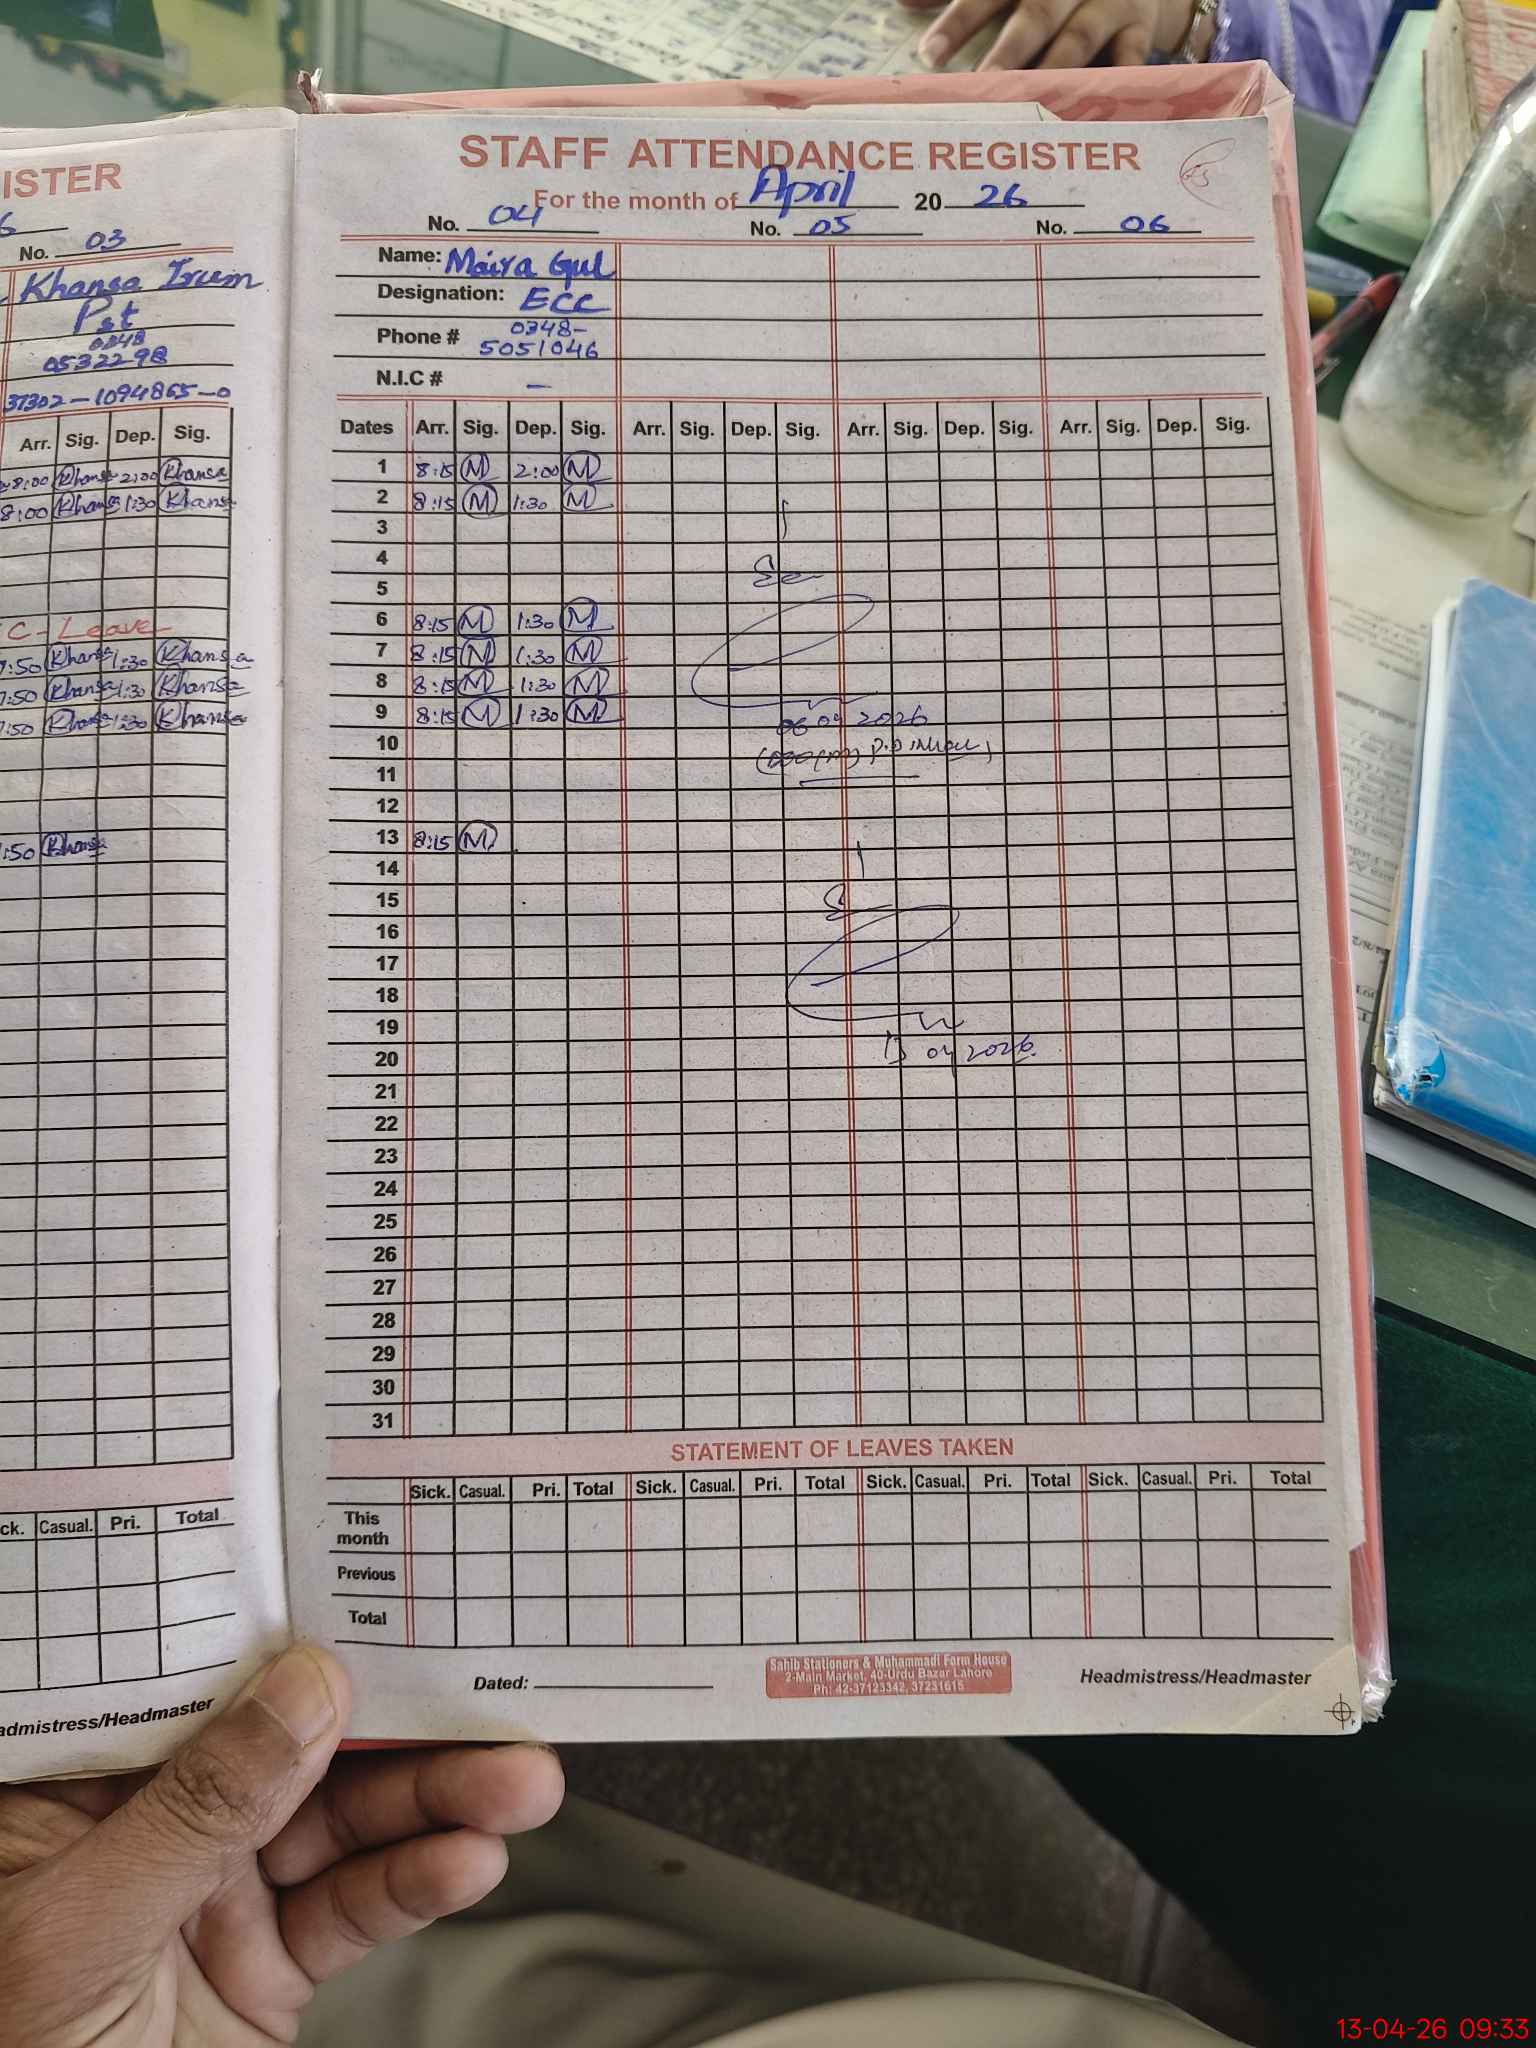 ISTER
6
No. 03
Khansa Irum
Pst
0348
0532298
37302-1094865-0
Arr. Sig. Dep. Sig.
8:00 Khansa 2:00 Khansa
8:00 Khansa 1:30 Khansa
C-Leave
7:50 Khansa 1:30 Khansa
7:50 Khansa 1:30 Khansa
7:50 Khansa 1:30 Khansa
:50 Khansa
ck. Casual. Pri. Total
admistress/Headmaster
STAFF ATTENDANCE REGISTER
For the month of April 20 26
No. 04 No. 05 No. 06
Name: Maira Gul
Designation: ECC
Phone # 0348-
5051046
N.I.C # —
Dates Arr. Sig. Dep. Sig. Arr. Sig. Dep. Sig. Arr. Sig. Dep. Sig. Arr. Sig. Dep. Sig.
1 8:15 M 2:00 M
2 8:15 M 1:30 M
3
4
5
6 8:15 M 1:30 M
7 8:15 M 1:30 M
8 8:15 M 1:30 M
9 8:15 M 1:30 M
06 04 2026
10
11
12
13 8:15 M
14
15
16
17
18
19
20
13 04 2026
21
22
23
24
25
26
27
28
29
30
31
STATEMENT OF LEAVES TAKEN
Sick. Casual. Pri. Total Sick. Casual. Pri. Total Sick. Casual. Pri. Total Sick. Casual. Pri. Total
This
month
Previous
Total
Dated:
Sahib Stationers & Muhammadi Form House
2-Main Market, 40-Urdu Bazar Lahore
Ph: 42-37123342, 37231615
Headmistress/Headmaster
13-04-26 09:33